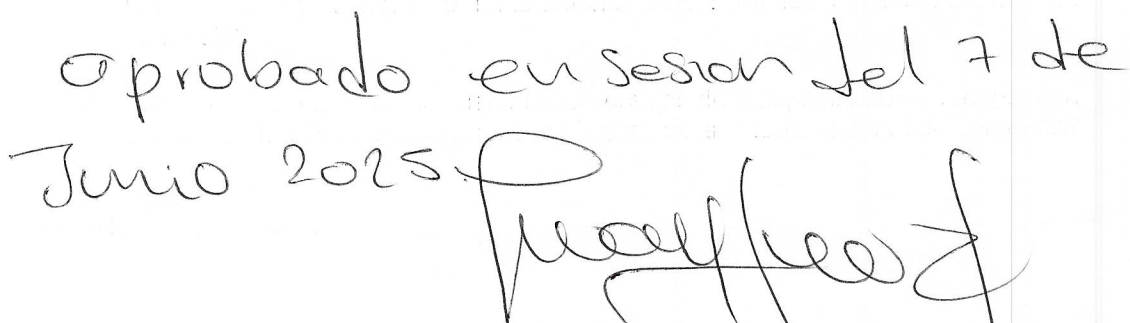 aprobado en sesion del 7 de
Junio 2025.